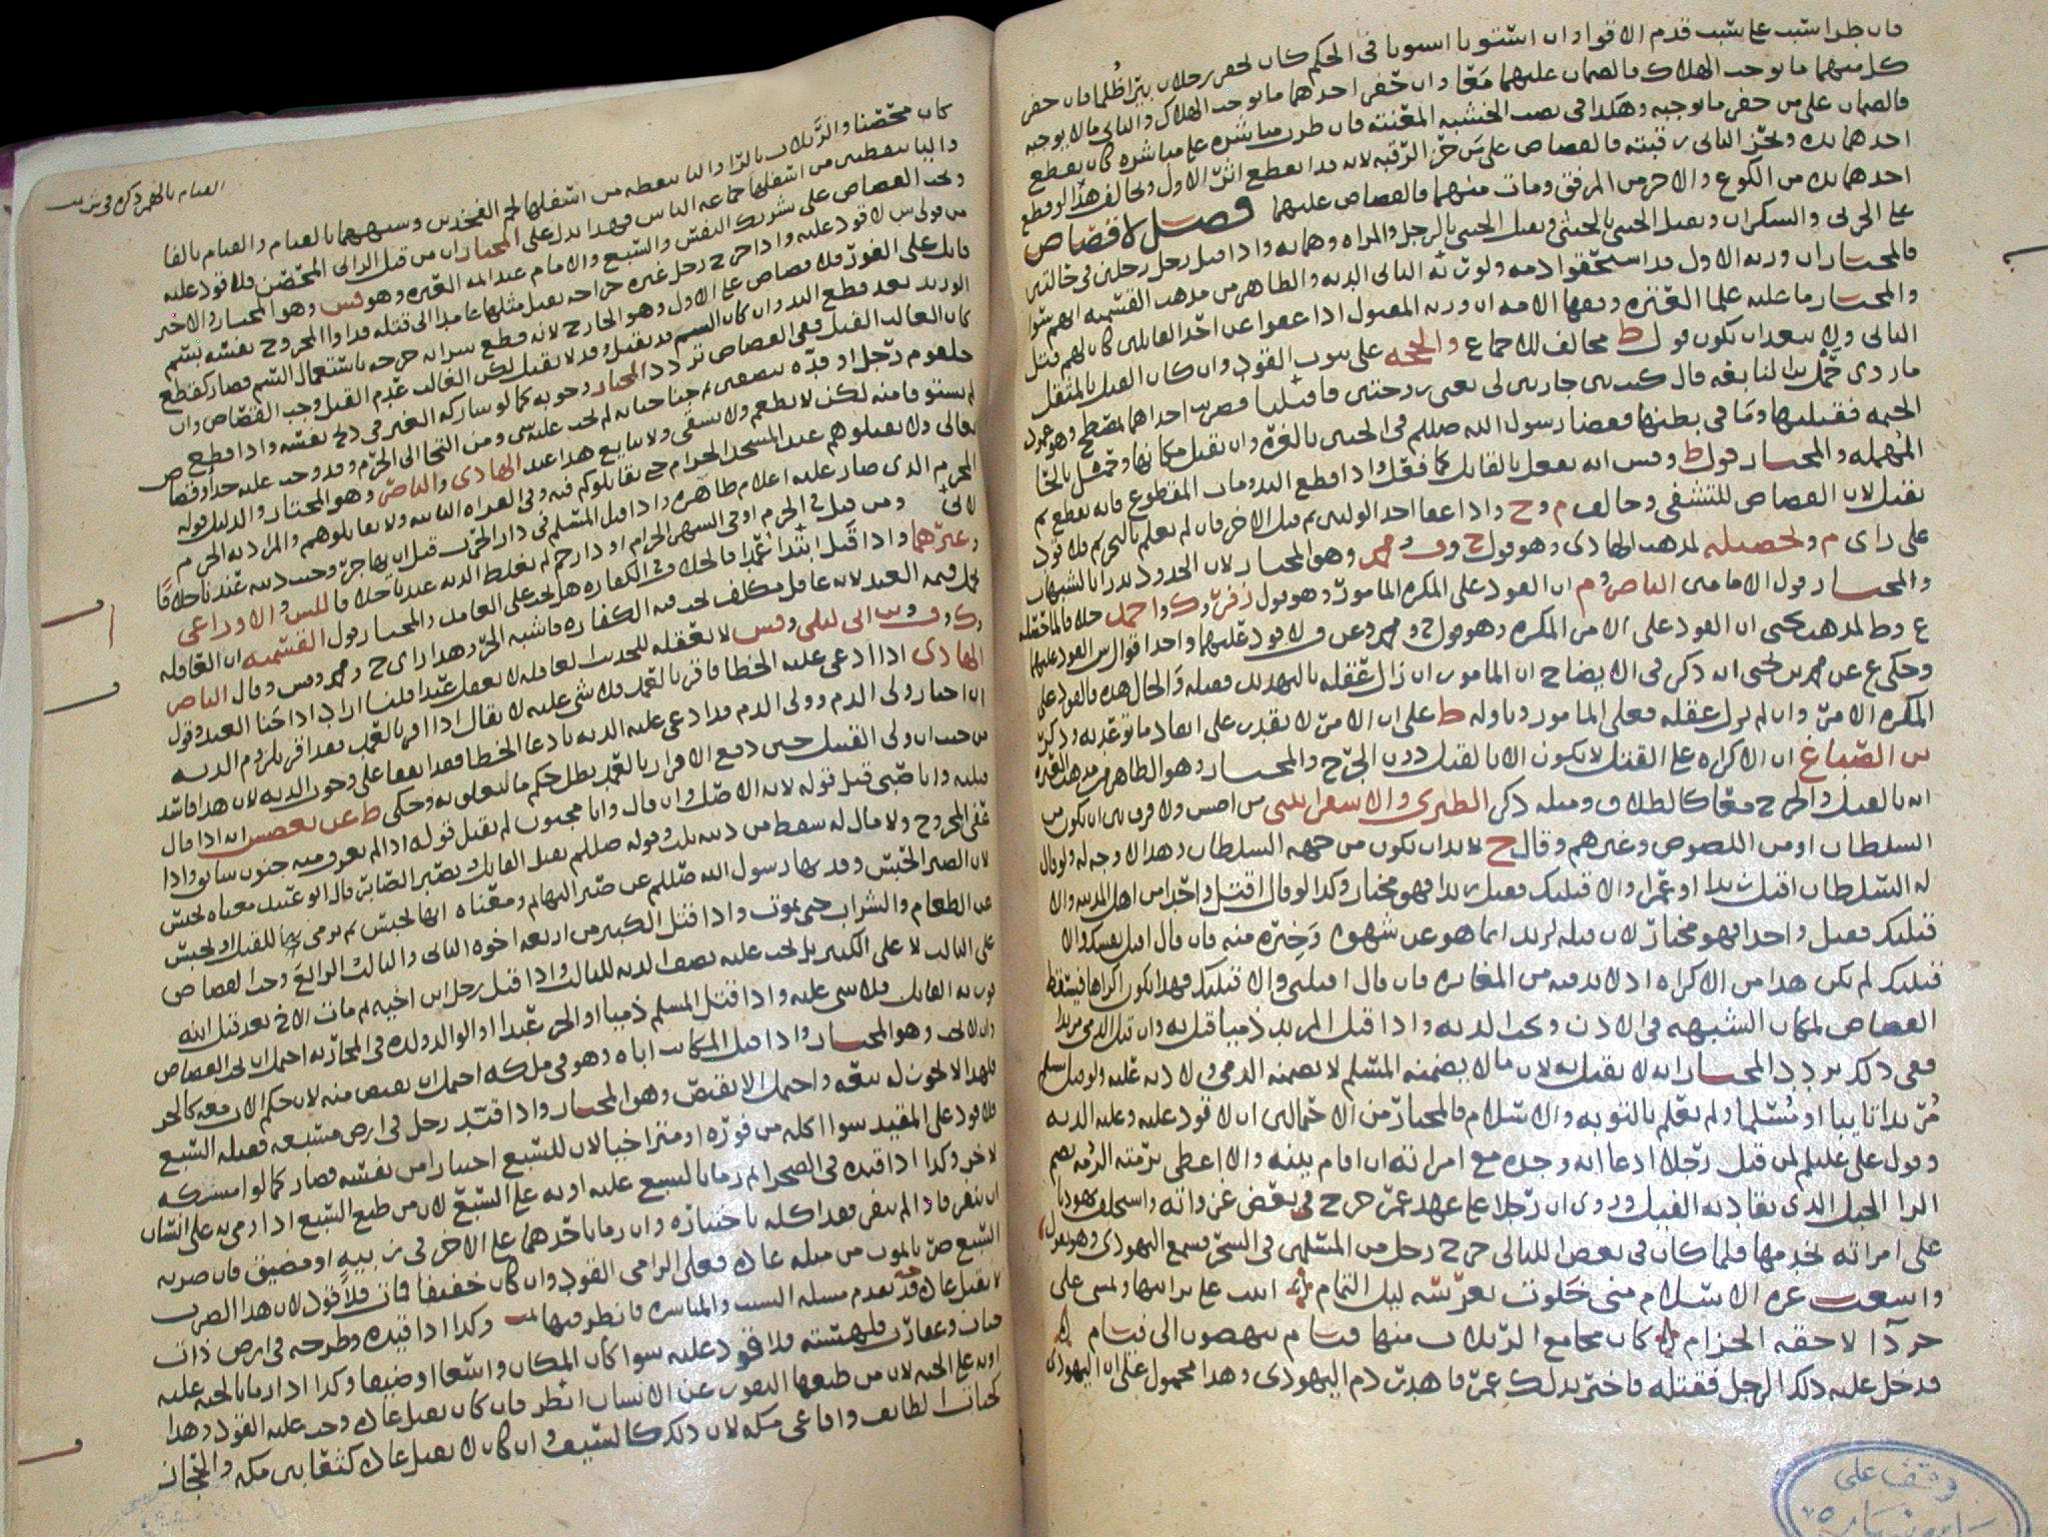 فان طرا سبب على سبب قدم الاقوى وان استويا اسويا في الحكم كان يحفر رجلان بيرا ظلما فان حفر
كل منهما ما يوجب الهلاك فالضمان عليهما معا وان حفر احدهما ما يوجب الهلاك والثاني ما لا يوجبه
فالضمان على من حفر ما يوجبه وهكذا في نصب الخشبه المعنته فان طرت مباشره على مباشره كان يقطع
احدهما يده ويحز الثاني رقبته فالقصاص على من حز الرقبه لانه قد انقطع اثر الاول ويخالف هذا لو قطع
احدهما يده من الكوع والاخر من المرفق ومات منهما فالقصاص عليهما فصل لا قصاص
على الحربي والسكران ويقتل الخنثى بالخنثى ويقتل الخنثى بالرجل والمراه وهما به واذا قتل رجل رجلين في حالتين
فالمختار ان ورثه الاول قد استحقوا دمه ولورثه الثاني الديه والظاهر من مذهب القسميه انهم سوا
والمختار ما عليه علما العتره وفقها الامه ان ورثه المقتول اذا عفوا عن احد القاتلين كان لهم قتل
الثاني ولا يبعد ان يكون قول ط مخالف للاجماع والحجه على ثبوت القود وان كان القتل بالمثقل
ما روى حمل بن النابغه قال كنت بين جاريتين لي يعني زوجتين فاقتتلتا فضربت احداهما بمسطح وهو عمود
الخيمه فقتلتها وما في بطنها فقضا رسول الله صللم في الجنين بالغره وان يقتل مكانها وحمل بالحا
المهمله والمختار قول ط وس انه يفعل بالقاتل كما فعل واذا قطع اليد ومات المقطوع فانه يقطع ثم
يقتل لان القصاص للتشفي وخالف م وح واذا عفا احد الوليين ثم قتل الاخر فان لم يعلم بالتحريم فلا قود
على راى م وتحصيله لمذهب الهادى وهو قول ح وف ومحمد وهو المختار لان الحدود تدرا بالشبهات
والمختار قول الامامين الناصر وم ان القود على المكره المامور وهو قول زفر وك واحمد خلافا لما حصله
ع وط لمذهب يحيى ان القود على الامر المكره وهو قول ح ومحمد وعن ف لا قود عليهما واحد اقوال ش القود عليهما
وحكى ع عن محمد بن يحيى انه ذكر في الايضاح ان المامور ان زال عقله بالتهديد فقتله والحال هذه فالقود على
المكره الامر وان لم يزل عقله فعلى المامور وتاوله ط على ان الامر لا يقدر على انفاذ ما توعد به وذكر
بن الصباغ ان الاكراه على القتل لا يكون الا بالقتل دون الجرح والمختار وهو الظاهر من مذهب العتره
انه بالقتل والجرح معا كالطلاق ومثله ذكر الطبري والاسفرايني من اصش ولا فرق بين ان يكون من
السلطان او من اللصوص وغيرهم وقال ح لا بد ان يكون من جهه السلطان وهذا لا وجه له ولو قال
له السلطان اقتل زيدا او عمرا والا قتلتك فقتل زيدا فهو مختار وكذا لو قال اقتل واحدا من اهل المدينه والا
قتلتك فقتل واحدا فهو مختار لان قتله لزيد انما هو عن شهوه وخيره منه فان قال اقتل نفسك والا
قتلتك لم يكن هذا من الاكراه اذ لا بد فيه من المغايره فان قال اقتلني والا قتلتك فهذا يكون اكراها فيسقط
القصاص لمكان الشبهه في الاذن وتجب الديه واذا قتل المرتد ذميا قتل به وان قتل الذمي مرتدا
ففي ذلك تردد المختار انه لا يقتل به لان ما لا يضمنه المسلم لا يضمنه الذمي ولا ديه عليه ولو قتل مسلم
مرتدا تايبا او مسلما ولم يعلم بالتوبه والاسلام فالمختار من الاحتمالين ان لا قود عليه وعليه الديه
وقول علي عليلم لمن قتل رجلا ادعا انه وجده مع امراته ان اقام بينه والا اعطى برمته الرمه بضم
الرا الحبل الذى يقاد به القتيل وروى ان رجلا على عهد عمر خرج في بعض غزواته واستخلف يهوديا
على امراته يخدمها فلما كان في بعض الليالي خرج رجل من المسلمين في السحر فسمع اليهودى وهو يقول
واشعث غره الاسلام منى خلوت بعرسه ليل التمام ابيت على ترايبها ويمسي على
جردآ لاحقه الحزام كان مجامع الربلات منها فيام ينهضون الى فيام
فدخل عليه ذلك الرجل فقتله فاخبر بذلك عمر فاهدر دم اليهودى وهذا محمول على ان اليهودى
كان محصنا والربلات بالرا والبا بنقطه من اسفلها لحم الفخذين وشبههما بالفيام والفيام بالفا
واليا بنقطتين من اسفلها جماعه الناس فهذا يدل على المختار ان من قتل الزاني المحصن فلا قود عليه
وتجب القصاص على شريك النفس والسبع والامام عند ايمه العتره وهو قس وهو المختار والاخير
من قولي س لا قود عليه واذا جرح رجل غيره جراحه يقتل مثلها عامدا الى قتله فداوا المجروح نفسه بسم
قاتل على الفور فلا قصاص على الاول وهو الجارح لانه قطع سرايه جرحه باستعمال السم فصار كقطع
الوريد بعد قطع اليد وان كان السم قد يقتل وقد لا يقتل لكن الغالب عدم القتل وجب القصاص وان
كان الغالب القتل ففي القصاص تردد المختار وجوبه كما لو شاركه الغير في ذبح نفسه واذا قطع
حلقوم رجل او قده نصفين ثم جنا جان لم يجب عليه شي ومن التجا الى الحرم وقد وجب عليه حد او قصاص
لم يستوفا منه لكن لا يطعم ولا يسقى ولا يبايع هذا عند الهادى والناصر وهو المختار والدليل قوله
تعالى ولا تقاتلوهم عند المسجد الحرام حتى يقاتلوكم فيه وفي القراه الثانيه ولا تقتلوهم والمراد به الحرم
المحرم الذى صار عليه اعلام ظاهره واذا قتل المسلم في دار الحرب قبل ان يهاجر وجب ديته عندنا خلافا
لابي ومن قتل في الحرم او في الشهر الحرام او ذا رحم لم تغلظ الديه عندنا خلافا للس والاوزاعى
وغيرهما واذا قتل ابتدا عمدا فالخلاف في الكفاره هل تجب على العامد والمختار قول القسميه ان العاقله
تحمل قيمه العبد لانه عاقل مكلف تجب فيه الكفاره فاشبه الحر وهذا راى ح ومحمد وس وقال الناصر
وك وف وبن ابي ليلى وقس لا تعقله للحديث العاقله لا تعقل عبدا قلنا اراد اذا جنا العبد وقول
الهادى اذا ادعى عليه الخطا فاقر بالعمد فلا شي عليه لا يقال اذا اقر بالعمد فقد اقر بلزوم الديه
ان اختار ولي الدم وولي الدم قد ادعى عليه الديه بادعا الخطا فقد اتفقا على وجوب الديه لان هذا فاسد
من حيث ان ولي القتيل حين دفع الاقرار بالعمد بطل حكم ما يتعلق به وحكى ط عن بعض س انه اذا قال
قتلته وانا صبي قبل قوله لانه الاصل وان قال وانا مجنون لم يقبل قوله اذا لم يعرف منه جنون سابق واذا
عفى المجروح ولا مال له سقط من ديته ثلث وقوله صللم يقتل القاتل ويصبر الصابر قال ابو عبيد معناه يحبس
لان الصبر الحبس وقد نها رسول الله صللم عن صبر البهايم ومعناه انها تحبس ثم ترمى بها للقتل او تحبس
عن الطعام والشراب حتى يموت واذا قتل الكبير من اربعه اخوه الثاني والثالث الرابع وجب القصاص
على الثالث لا على الكبير بل يجب عليه نصف الديه للثالث واذا قتل رجل ابن اخيه ثم مات الاخ بعد قتل ابنه
فورثه القاتل فلا شي عليه واذا قتل المسلم ذميا او الحر عبدا او الوالد ولده في المحاربه احتمل ان يجب القصاص
وان لا يجب وهو المختار واذا قتل المكاتب اباه وهو في ملكه احتمل ان يقتص منه لان حكم الاب معه كالحر
فلهذا لا يجوز له بيعه واحتمل الا يقتص وهو المختار واذا قتيد رجل في ارض مسبعه فقتله السبع
فلا قود على المقيد سوا اكله من فوره او متراخيا لان للسبع اختيارا من نفسه فصار كما لو امسكه
لاخر وكذا اذا قيده في الصحرا ثم رما بالسبع عليه او به على السبع لان من طبع السبع اذا رمي به على انسان
ان ينفر فاذا لم ينفر فقد اكله باختياره وان رما باحدهما على الاخر في زبيه او مضيق فان ضربه
السبع ضربا يموت من مثله عاده فعلى الرامى القود وان كان خفيفا فمات فلا قود لان هذا الضرب
لا يقتل عاده وقد تقدم مسله السبب والمباشره فانظر فيها وكذا اذا قيده وطرحه في ارض ذات
حيات وعقارب فلهسته فلا قود عليه سوا كان المكان واسعا او ضيقا وكذا اذا رما بالحيه عليه
او به على الحيه لان من طبعها النفور عن الانسان انظر فان كان يقتل عاده وجب عليه القود وهذا
كحيات الطايف وافاعى مكه لان ذلك كالسيف وان كان لا يقتل عاده كثعابين مكه والحجاز
وقف على